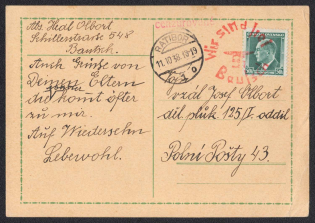 Abs. Hedl Olbort
Schillerstraße 548
Bautsch.
Auch Grüße von
Deinen Eltern
komt öfter
zu mir.
Auf Wiedersehn
Lebewohl.
RATIBOR
11.10.38.18-19
Wir sind frei
vozál Josef Olbort
děl. pluk. 125/I. oddíl
Polní Pošty 43.